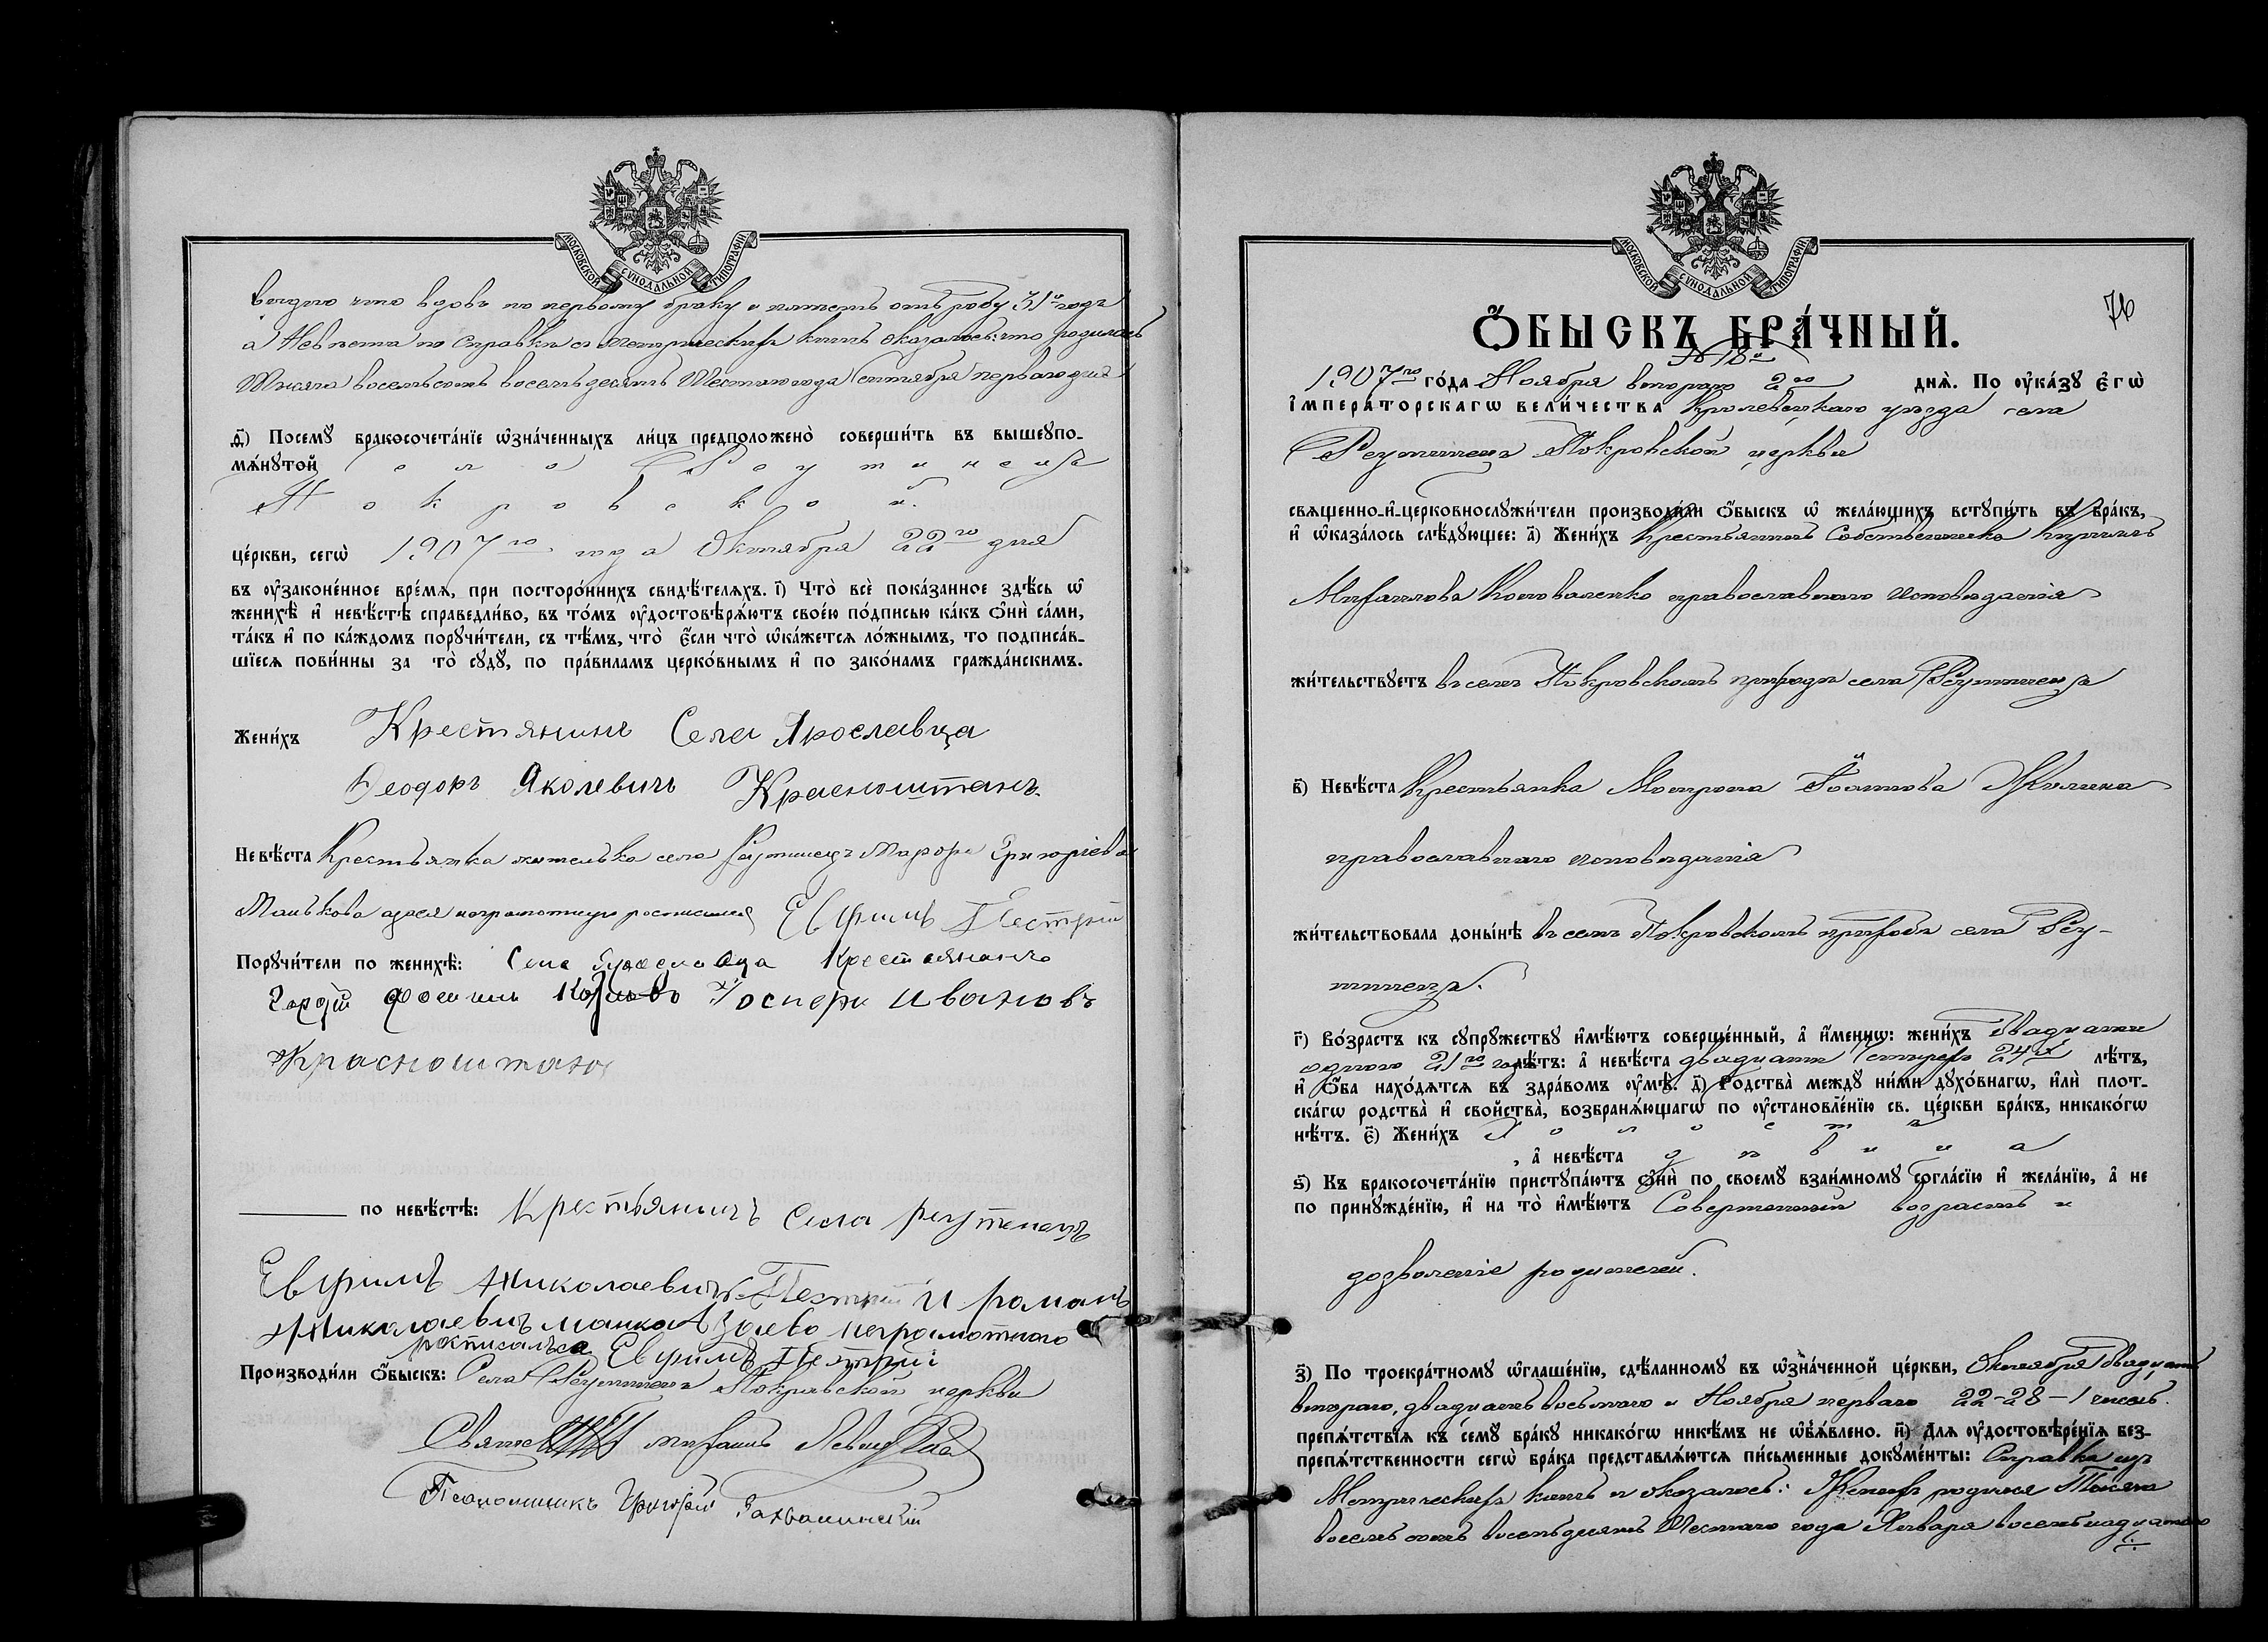 МОСКОВСКОЙ СѴНОДАЛЬНОЙ ТИПОГРАФІИ
видно что вдовъ по первому браку и имеетъ отъ роду 31й годъ
а Невеста по Справки съ Метрическихъ книгъ оказалось: что родилась
Тысяча восемьсотъ восемьдесятъ Шестаго года Сентября перваго дня
д҃і) Посемꙋ̀ бракосочета́нїе ѡ҆зна́ченныхъ ли́цъ предположено̀ соверши́ть въ вышеупо-
мѧ́нꙋтой села Реутинецъ
Покровской
це́ркви, сегѡ̀ 1907го года Октября 22го дня
въ ᲂу҆зако́ненное вре́мѧ, при посторо́ннихъ свидѣ́телѧхъ. і҃) Что̀ всѐ пока́занное здѣ́сь ѡ҆
женихѣ̀ и҆ невѣ́стѣ справедли́во, въ то́мъ ᲂу҆достовѣрѧ́ютъ свое́ю по́дписью ка́къ ѻ҆нѝ са́ми,
та́къ и҆ по ка́ждомъ порꙋчи́тели, съ тѣ́мъ, что̀ є҆́сли что̀ ѡ҆ка́жетсѧ ло́жнымъ, то подписа́в-
шїесѧ пови́нны за то̀ сꙋдꙋ̀, по пра́виламъ церко́внымъ и҆ по зако́намъ гражда́нскимъ.
Жени́хъ Крестянинъ Села Ярославца
Феодоръ Яколевичъ Красноштанъ
Невѣ́ста Крестьянка жителька села Реутинецъ Марфа Григоріева
Манькова а зася неграмотную росписался Евфимъ Пестрый
Порꙋчи́тели по женихѣ̀: Села Ярославца Крестиянинъ
Івановъ
Красноштанъ
по невѣ́стѣ: Крестьянинъ Села реутенецъ
Евфимъ Николаевичъ Пестрый И романъ
Николаевичъ манков Заево неграмотнаго
росписалься Евфимъ Пестрый
Производи́ли ѻ҆́быскъ: Села Реутинецъ Покровской церкви
Михаилъ
Псаломщикъ Григорій
76
МОСКОВСКОЙ СѴНОДАЛЬНОЙ ТИПОГРАФІИ
Ѻ҆́БЫСКЪ БРА́ЧНЫЙ.
№ 18й
1907го го́да Ноября второго 2го днѧ̀. По ᲂу҆ка́зꙋ Є҆гѡ̀
І҆мпера́торскагѡ вели́чества Кролевецкаго уезда села
Реутинецъ Покровской церкви
свѧще́нно-и҆-церковнослꙋжи́тели производи́ли ѻ҆́быскъ ѡ҆ жела́ющихъ встꙋпи́ть въ бра́къ,
и҆ ѡ҆каза́лось слѣ́дꙋющее: а҃) Жени́хъ Крестьянинъ Собственникъ Кирилъ
Михаиловъ Коноваленко православнаго исповеданія
жи́тельствꙋетъ въ семъ Покровскомъ приходе села Реутинецъ
в҃) Невѣ́ста Крестьянка Мотрона Іоаннова Жилина
православнаго исповеданія
жи́тельствовала доны́нѣ въ семъ Покровскомъ приходе села Реу-
тинецъ.
г҃) Во́зрастъ къ сꙋпрꙋ́жествꙋ и҆мѣ́ютъ соверше́нный, а҆ и҆́меннѡ: жени́хъ двадцати
одного 21го год лѣ́тъ: а҆ невѣ́ста двадцати Четырехъ 24хъ лѣ́тъ,
и҆ ѻ҆́ба нахо́дѧтсѧ въ здра́вомъ ᲂу҆мѣ̀. д҃) Родства̀ междꙋ̀ ни́ми дꙋхо́внагѡ, и҆лѝ плот-
ска́гѡ родства̀ и҆ сво́йства̀, возбранѧ́ющагѡ по ᲂу҆становле́нїю св. це́ркви бра́къ, никако́гѡ
нѣ́тъ. є҃) Жени́хъ Холостъ
, а҆ невѣ́ста девица
ѕ҃) Къ бракосочета́нїю пристꙋпа́ютъ ѻ҆нѝ по своемꙋ̀ взаи́мномꙋ согла́сїю и҆ жела́нїю, а҆ не
по принꙋжде́нїю, и҆ на то̀ и҆мѣ́ютъ Совершенный возрастъ и
дозволеніе родителей.
з҃) По троекра́тномꙋ ѡ҆глаше́нїю, сдѣ́ланномꙋ въ ѡ҆зна́ченной це́ркви, Октября двадцать
второго, двадцать восьмого и Ноября перваго 22-28-1 чиселъ.
препѧ́тствїѧ къ семꙋ̀ бра́кꙋ никако́гѡ никѣ́мъ не ѡ҆бъѧ́влено. и҃) Для ᲂу҆достовѣре́нїѧ без-
препѧ́тственности сегѡ̀ бра́ка представлѧ́ютсѧ пи́сьменные докꙋме́нты: Справка изъ
Метрическихъ книгъ и оказалось: Женихъ родился Тысяча
восемьсотъ восемьдесятъ Шестаго года Января восемьнадцатого